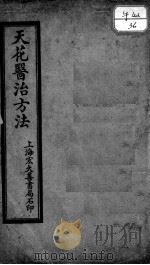 天花醫治方法
上海宏大善書局石印
36